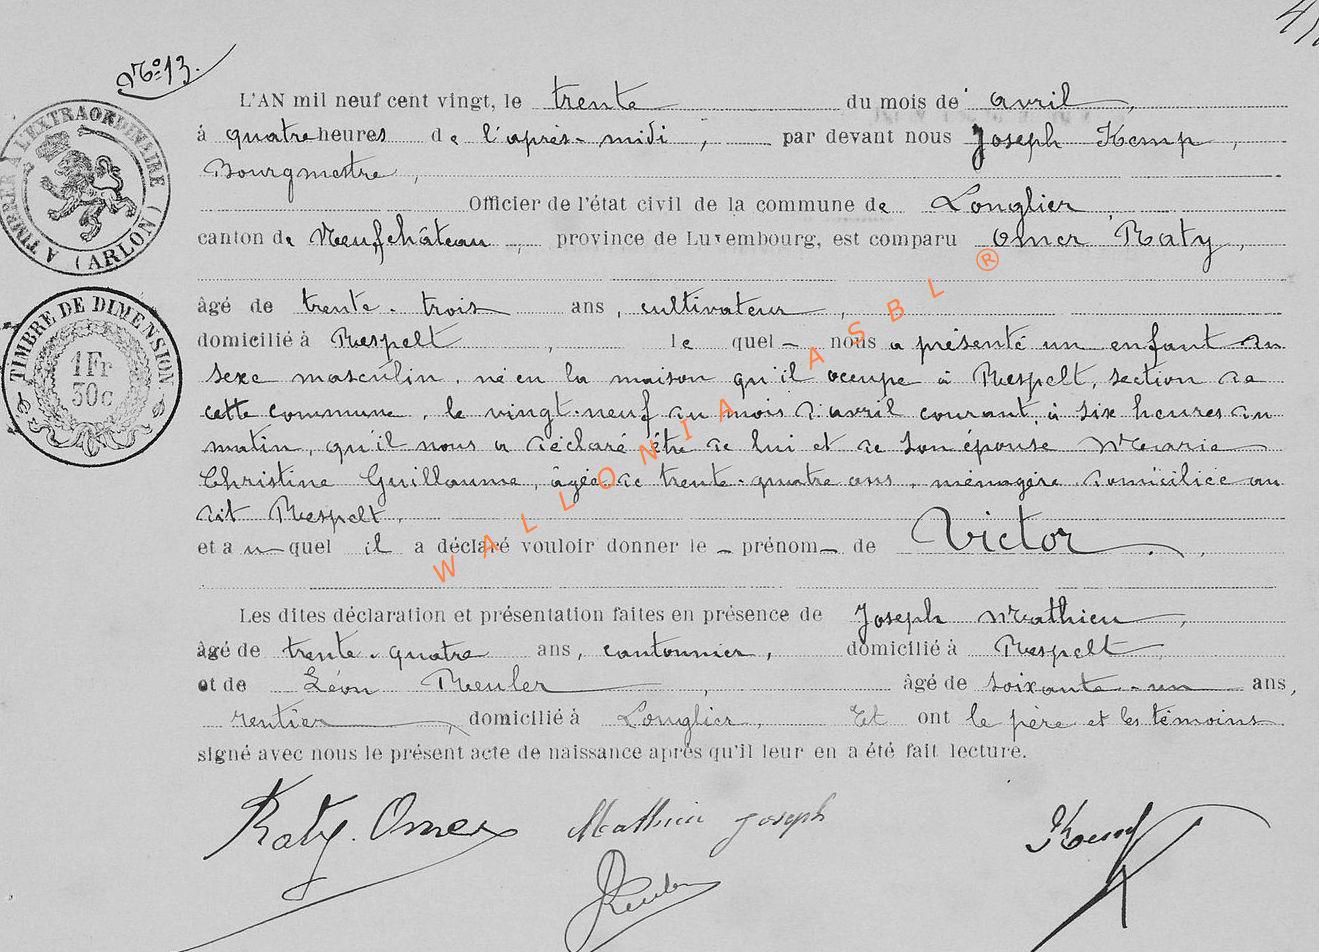 No: 13.
L'AN mil neuf cent vingt, le trente du mois de avril,
à quatre heures de l'après-midi, par devant nous Joseph Kemp,
Bourgmestre,
Officier de l'état civil de la commune de Longlier,
canton de Neufchâteau, province de Luxembourg, est comparu Omer Raty,
âgé de trente-trois ans, cultivateur,
domicilié à Respelt, lequel nous a présenté un enfant du
sexe masculin, né en la maison qu'il occupe à Respelt, section de
cette commune, le vingt-neuf du mois d'avril courant à six heures du
matin, qu'il nous a déclaré être de lui et de son épouse Marie
Christine Guillaume, âgée de trente-quatre ans, ménagère domiciliée au
dit Respelt,
et auquel il a déclaré vouloir donner le prénom de Victor.
Les dites déclaration et présentation faites en présence de Joseph Mathieu,
âgé de trente-quatre ans, cantonnier, domicilié à Respelt
et de Léon Reuler, âgé de soixante-un ans,
rentier, domicilié à Longlier, Et ont le père et les témoins
signé avec nous le présent acte de naissance après qu'il leur en a été fait lecture.
Raty. Omer Mathieu Joseph Kemp
Reuler
A TIMBRER A L'EXTRAORDINAIRE (ARLON)
TIMBRE DE DIMENSION
1Fr
30c
WALLONIA ASBL ®